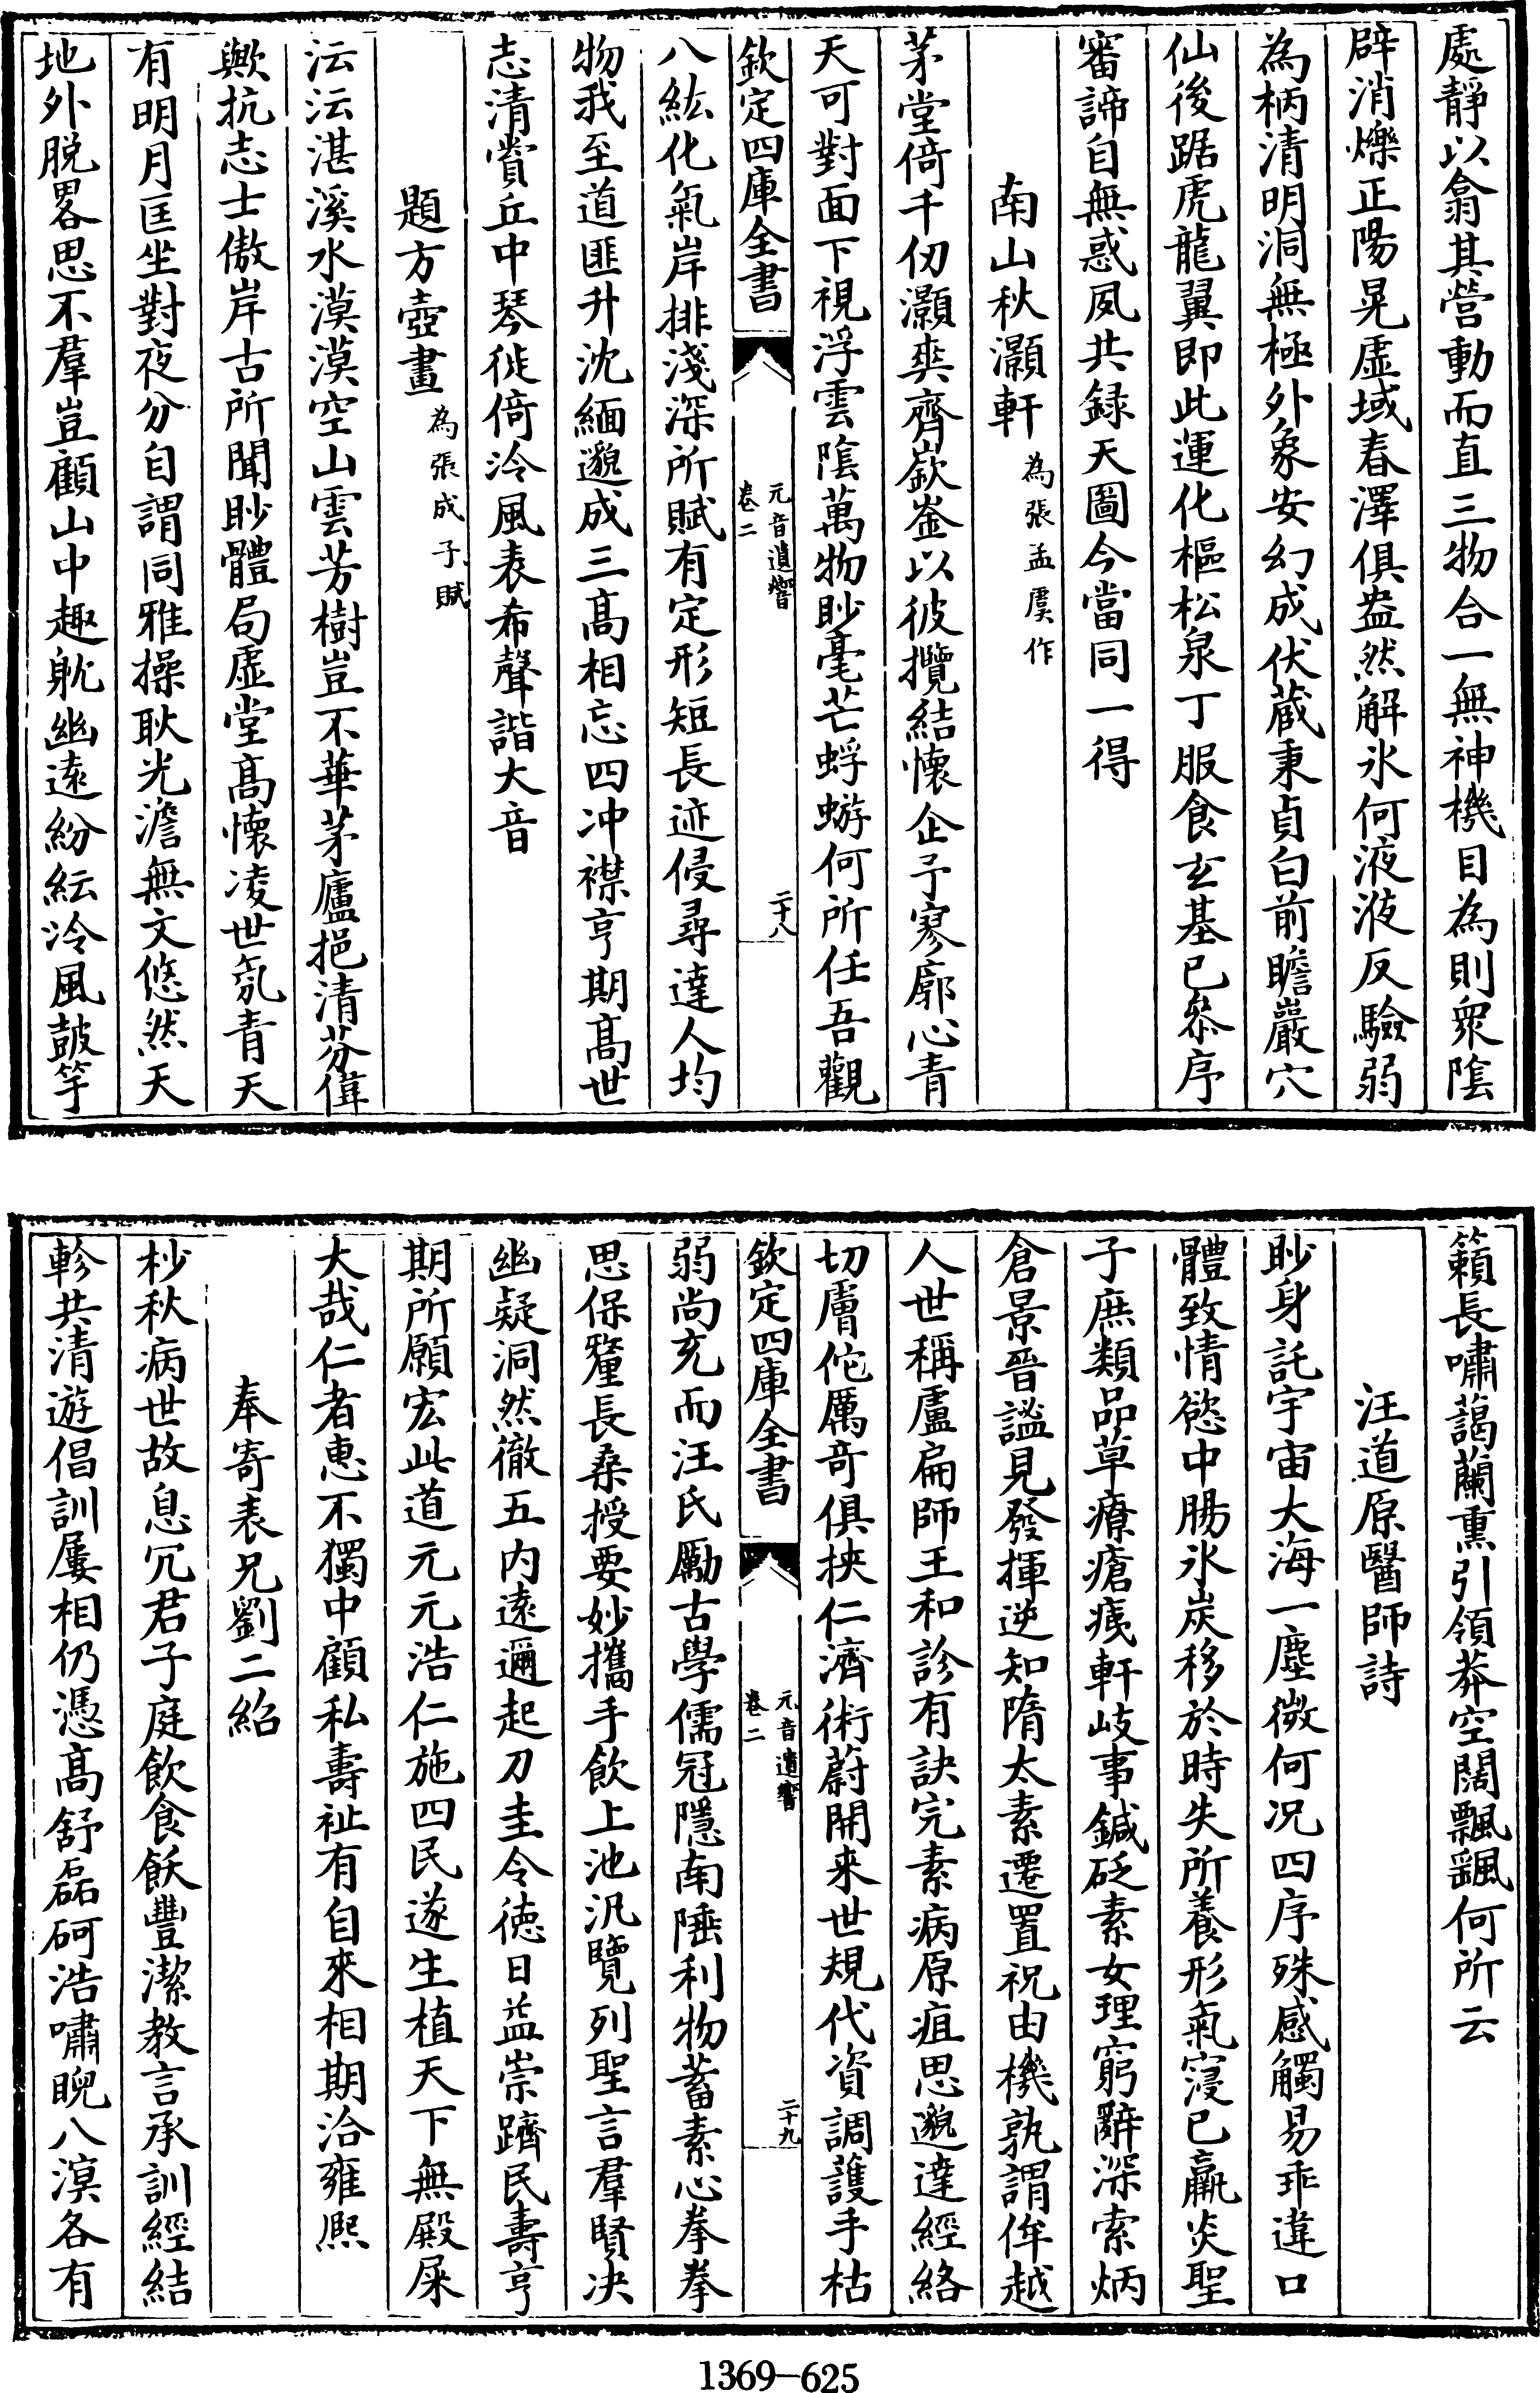 處靜以翕其營動而直三物合一無神機目為則衆陰
辟消爍正陽晃虛域春澤俱盎然解氷何液液反驗弱
為柄清明洞無極外象安幻成伏蔵秉貞白前瞻巖穴
仙後踞虎龍翼即此運化樞松泉丁服食玄基已叅序
審諦自無惑夙共録天圖今當同一得
南山秋灝軒為張孟虞作
茅堂倚千仞灝爽齊嶔崟以彼攬結懷企予寥廓心青
天可對面下視浮雲陰萬物眇毫芒蜉蝣何所任吾觀
欽定四庫全書
元音遺響
卷二
二十八
八紘化氣岸排淺深所賦有定形短長迹侵尋達人均
物我至道匪升沈緬邈成三髙相忘四冲襟亨期髙世
志清賞丘中琴徙倚冷風表希聲諧大音
題方壺畫為張成子賦
沄沄湛溪水漠漠空山雲芳樹豈不華茅廬挹清芬偉
歟抗志士傲岸古所聞眇體局虛堂髙懷凌世氛青天
有明月匡坐對夜分自謂同雅操耿光澹無文悠然天
地外脱畧思不羣豈顧山中趣躭幽逺紛紜冷風皷竽
籟長嘯藹蘭熏引領莽空闊飄颻何所云
汪道原醫師詩
眇身託宇宙大海一塵微何况四序殊感觸易乖違口
體致情慾中腸氷炭移於時失所養形氣寖已羸炎聖
子庶類品草療瘡痍軒岐事鍼砭素女理窮辭深索炳
倉景晉謐見發揮逆知隋太素遷置祝由機孰謂侔越
人世稱盧扁師王和診有訣完素病原疽思邈達經絡
切膚佗厲奇俱挾仁濟術蔚開来世規代資調護手枯
欽定四庫全書
元音遺響
卷二
二十九
弱尚充而汪氏勵古學儒冠隱南陲利物蓄素心拳拳
思保釐長桑授要妙攜手飲上池汎覽列聖言羣賢决
幽疑洞然徹五内逺邇起刀圭令徳日益崇躋民壽亨
期所願宏此道元元浩仁施四民遂生植天下無殿屎
大哉仁者惠不獨中顧私壽祉有自來相期洽雍熙
奉寄表兄劉二紹
杪秋病世故息冗君子庭飲食飫豐潔教言承訓經結
軫共清遊倡訓屢相仍憑髙舒磊砢浩嘯睨八溟各有
1369—625